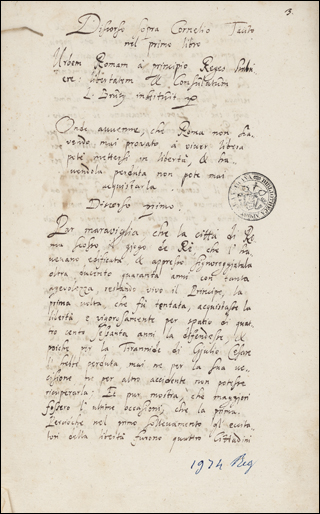 3.
Discorso sopra Cornelio Tacito
nel primo libro
Urbem Romam à principio Reges habu
ere: libertatem & Consulatum
L. Brutus instituit
Onde avvenne, che Roma non ha
vendo mai provato à viver libera
potè mettersi in libertà, & ha
vendola perduta non potè mai
acquistarla
Discorso primo.
Par maraviglia che la città di Ro
ma scosso il giogo de Rè che l'ha
veano edificata, & appresso signoreggiata
oltra ducento quaranta anni con tanta
agevolezza, restando vivo il Principe, la
prima volta, che fu tentata, acquistasse la
libertà e vigorosamente per spatio di quat
tro cento sessanta anni la difendesse, &
poiche per la Tirannide di Giulio Cesare
l'hebbe perduta mai ne per la sua uc
cisione ne per altro accidente non potesse
ricuperarla. Et pur mostra, che maggiori
fossero l'ultime occasioni, che la prima.
Percioche nel primo sollevamento gl'eccita
tori della libertà furono quattro Cittadini
1974 Reg